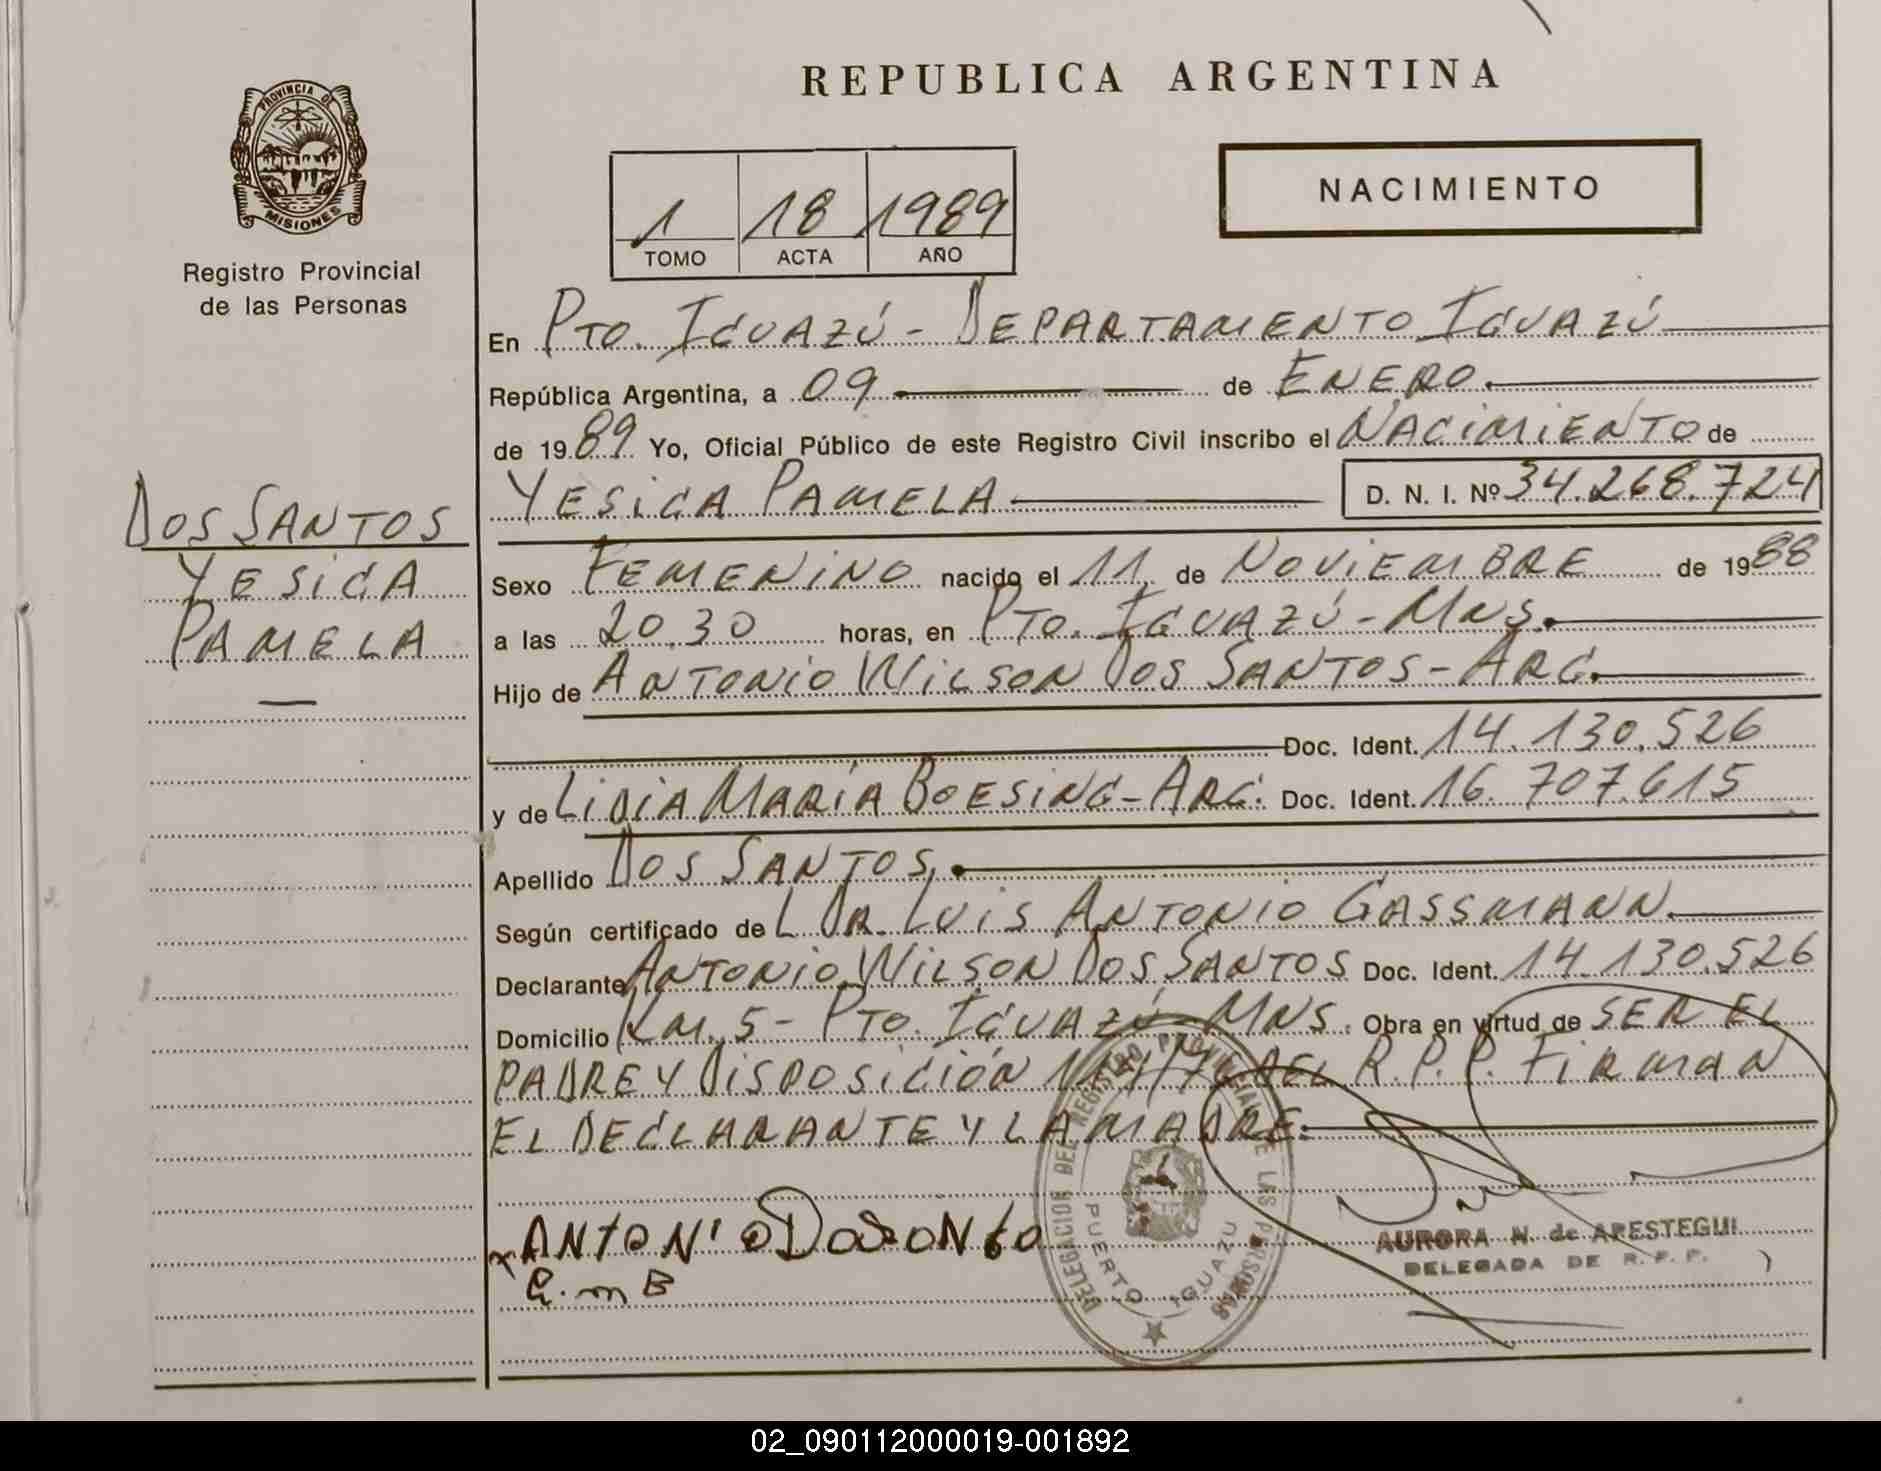 REPUBLICA ARGENTINA
PROVINCIA DE
MISIONES
Registro Provincial
de las Personas
NACIMIENTO
1 18 1989
TOMO ACTA AÑO
En PTO. IGUAZÚ - DEPARTAMENTO IGUAZÚ
República Argentina, a 09 de ENERO
de 1989 Yo, Oficial Público de este Registro Civil inscribo el NACIMIENTO de
YESICA PAMELA D. N. I. Nº 34.268.724
DOS SANTOS
YESICA
PAMELA
Sexo FEMENINO nacido el 11 de NOVIEMBRE de 1988
a las 20.30 horas, en PTO. IGUAZÚ - MNS.
Hijo de ANTONIO WILSON DOS SANTOS - ARG.
Doc. Ident. 14.130.526
y de LIDIA MARÍA BOESING - ARG. Doc. Ident. 16.707.615
Apellido DOS SANTOS.
Según certificado de L DR. LUIS ANTONIO GASSMANN.
Declarante ANTONIO WILSON DOS SANTOS Doc. Ident. 14.130.526
Domicilio KM. 5 - PTO. IGUAZÚ - MNS. Obra en virtud de SER EL
PADRE Y DISPOSICIÓN DEL R.P.P. FIRMAN
EL DECLARANTE Y LA MADRE.
DELEGACION DEL REGISTRO PROVINCIAL DE LAS PERSONAS
PUERTO IGUAZU
AURORA N. de ARESTEGUI
DELEGADA DE R. P. P.
L. m B
02_090112000019-001892